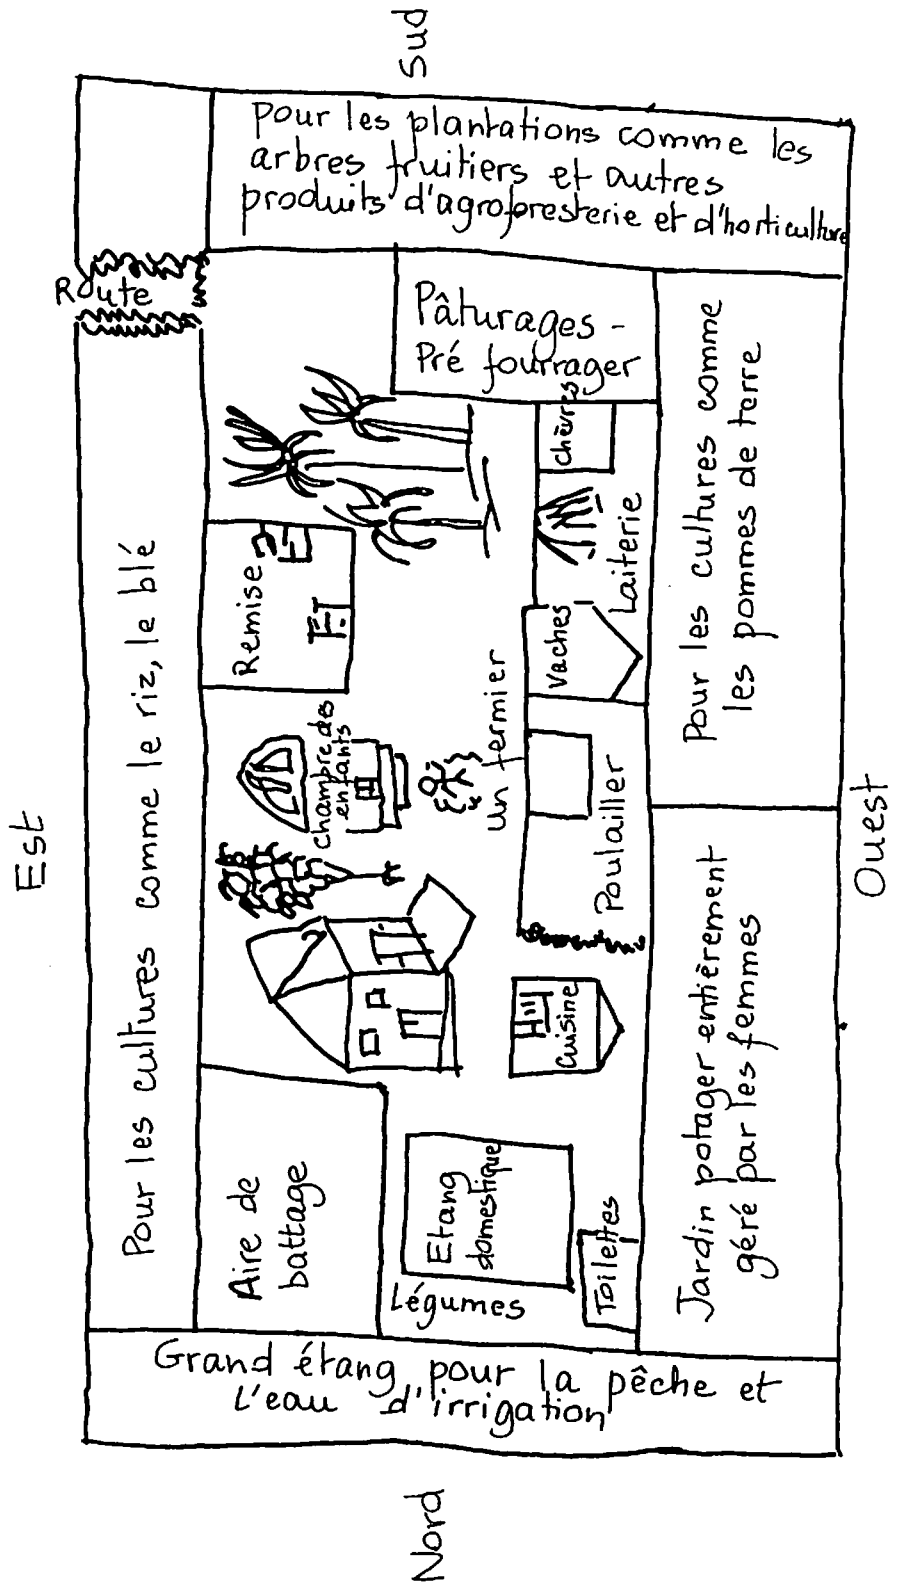 Sud
pour les plantations comme les
arbres fruitiers et autres
produits d'agroforesterie et d'horticulture
Route
Pâturages -
Pré fourrager
Est
Pour les cultures comme le riz, le blé
Remise
Chèvres
Laiterie
Vaches
Pour les cultures comme
les pommes de terre
Chambre des
enfants
Un fermier
Poulailler
Cuisine
Ouest
Jardin potager entièrement
géré par les femmes
Aire de
battage
Etang
domestique
Légumes
Toilettes
Grand étang pour la pêche et
l'eau d'irrigation
Nord